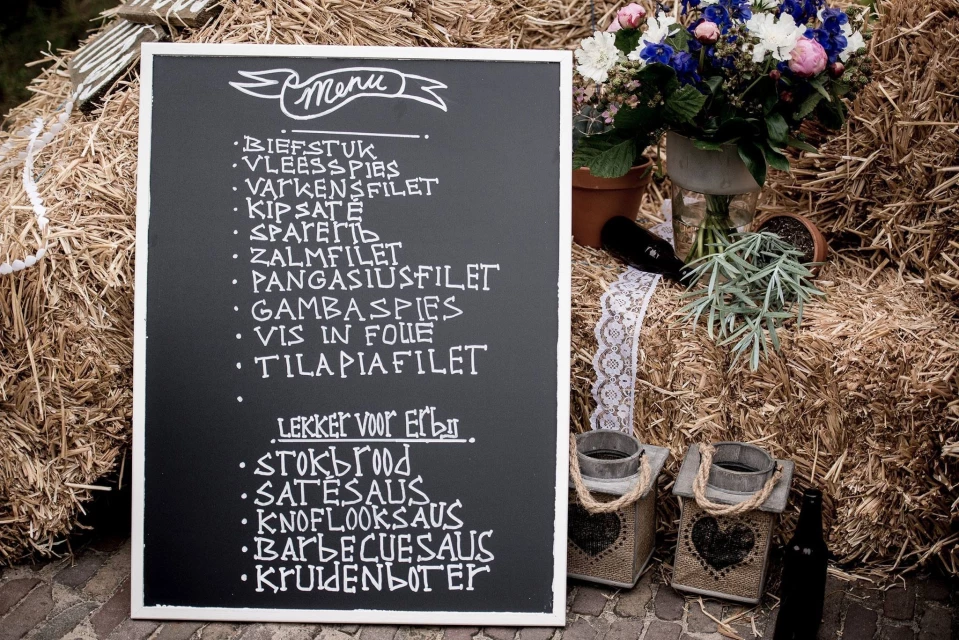 Menu
· BIEFSTUK
· VLEESSPIES
· VARKENSFILET
· KIPSATÉ
· SPARERIB
· ZALMFILET
· PANGASIUSFILET
· GAMBASPIES
· VIS IN FOLIE
· TILAPIAFILET
·
LEKKER VOOR ERBIJ
· STOKBROOD
· SATÉSAUS
· KNOFLOOKSAUS
· BARBECUESAUS
· KRUIDENBOTER